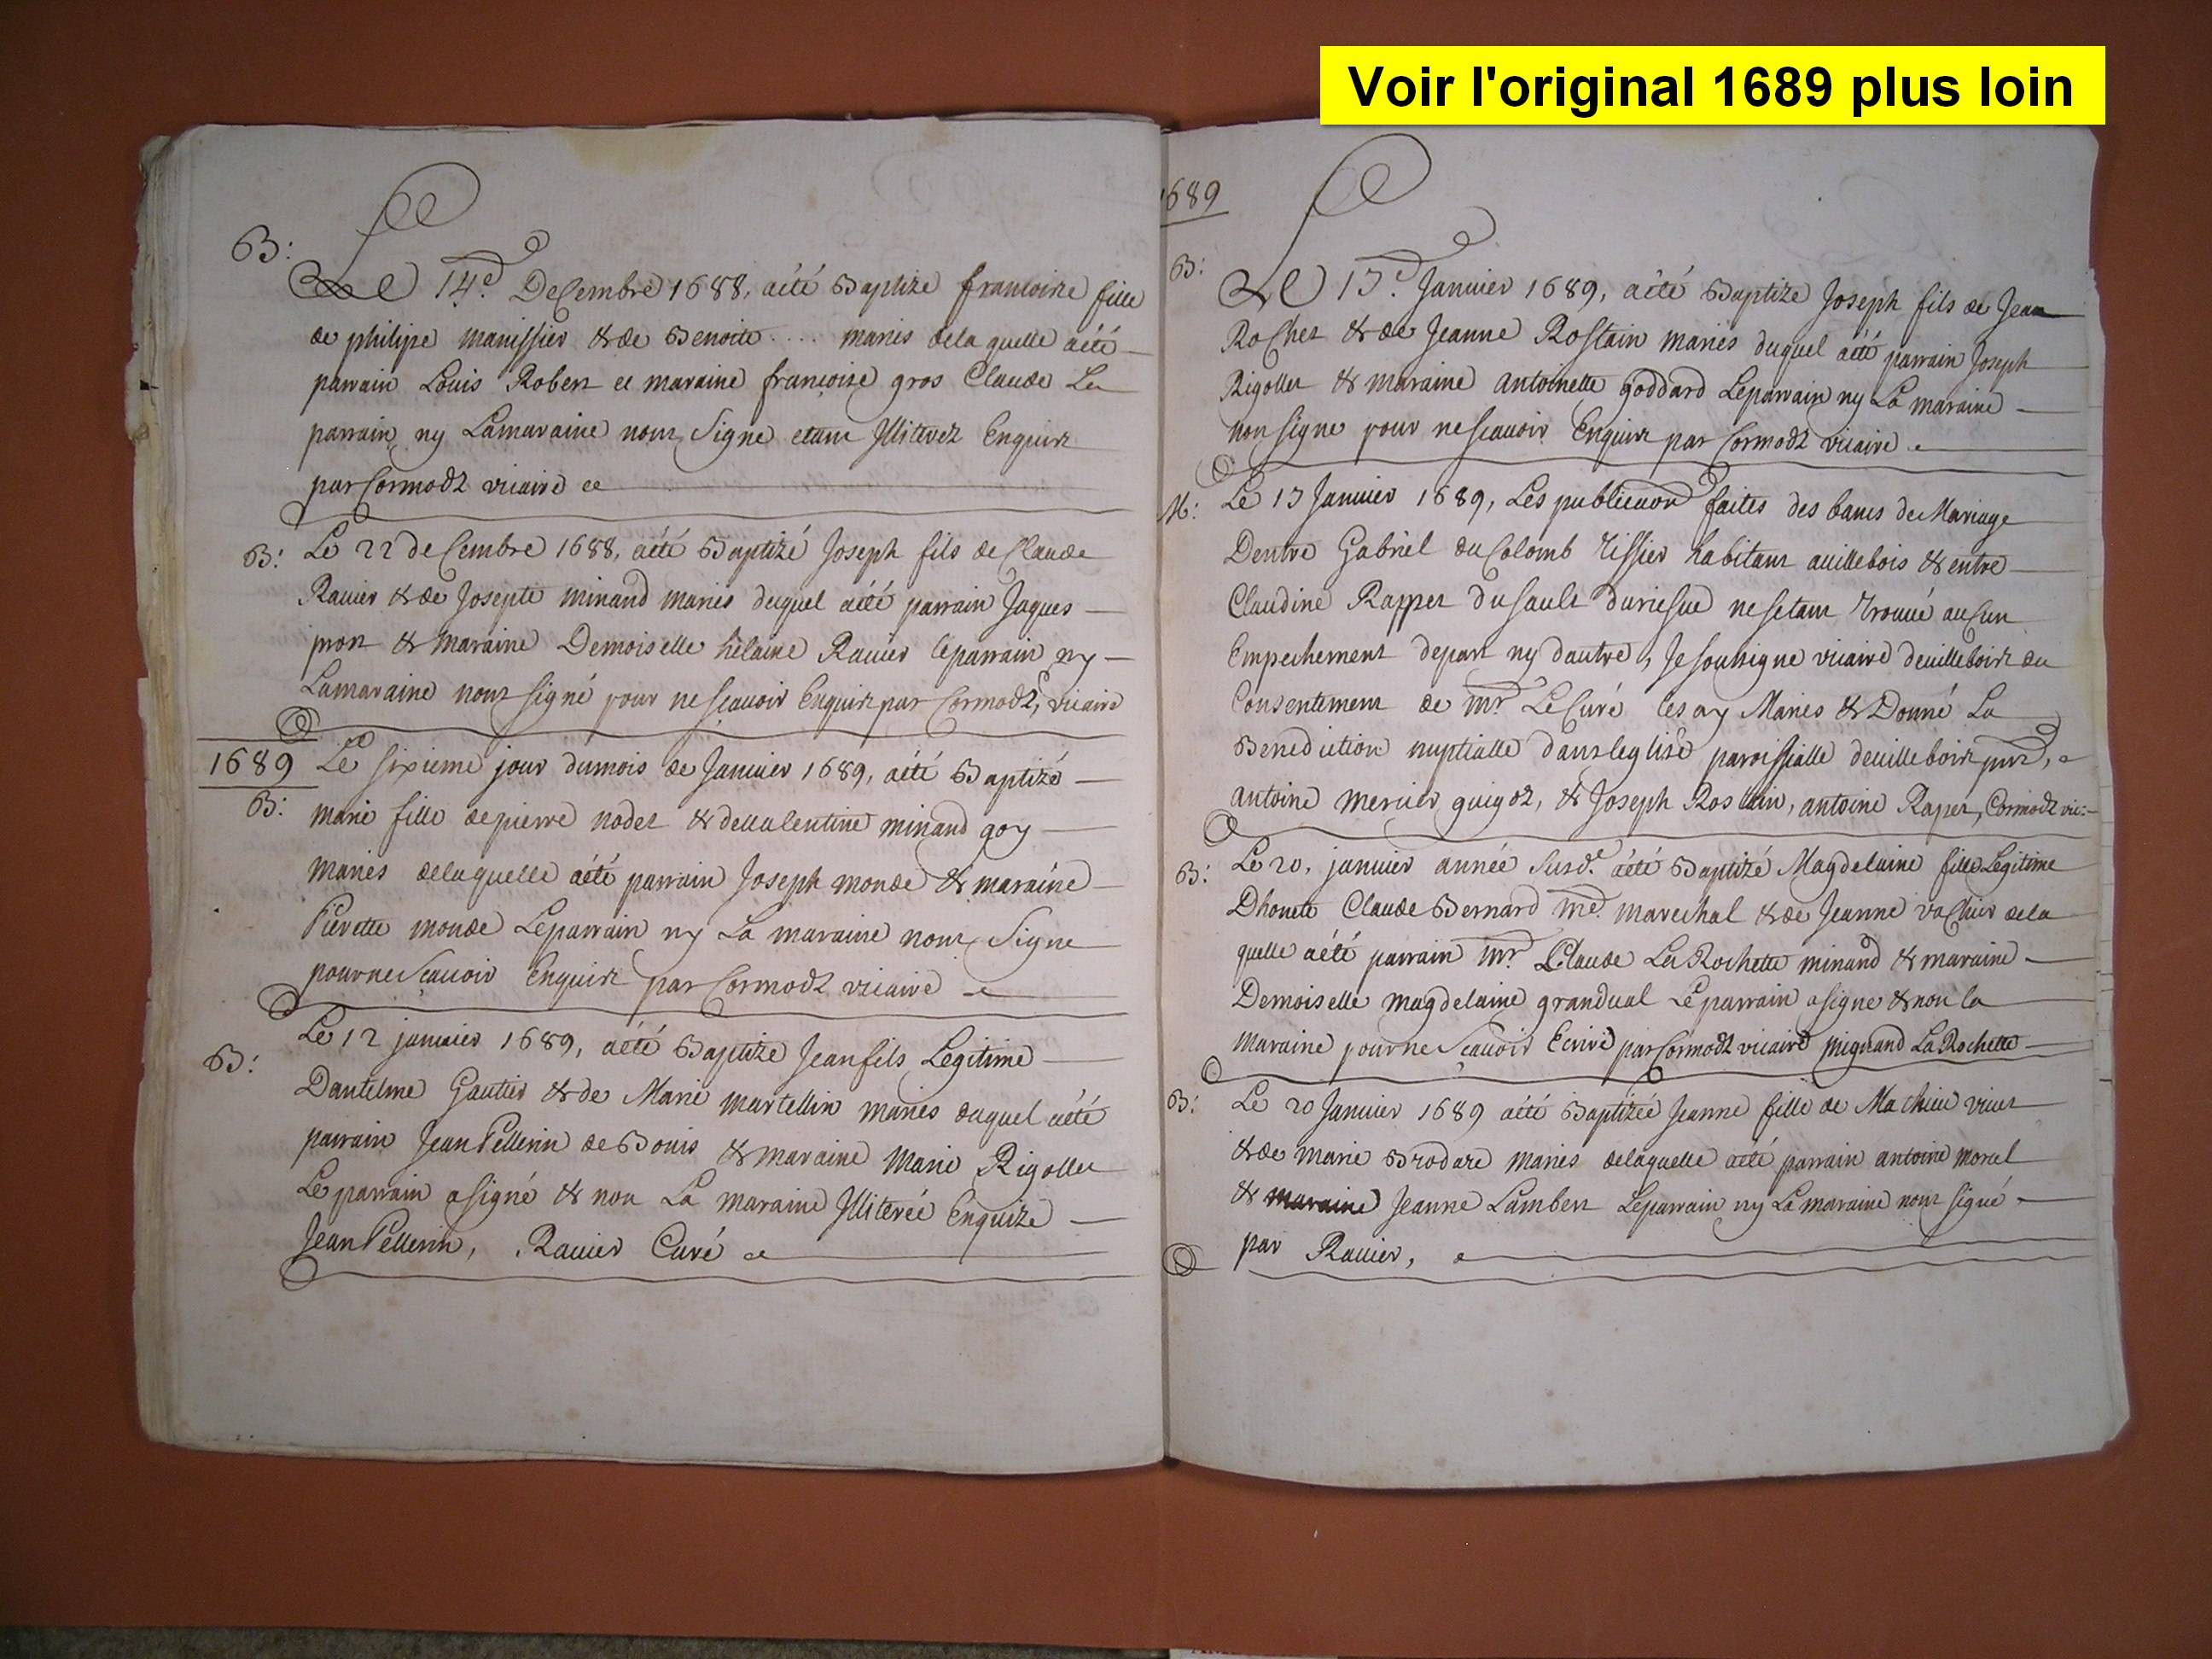 Voir l'original 1689 plus loin
B:
Le 14e. Decembre 1688, aété Baptize francoise fille
de philipe manissier & de Benoite .... maries dela quelle aété
parrain Louis Robert et maraine françoise gros Claude Le
parrain ny Lamaraine nont Signe etant Jlliterez Enquis
par Cormodz vicaire
B: Le 22 deCembre 1688, aété Baptizé Joseph fils de Claude
Ravier & de Josepte minand maries duquel aété parrain Jaques
pront & Maraine Demoiselle hélaine Ravier leparrain ny
Lamaraine nont signé pour ne sçauoir Enquis par Cormodz, vicaire
1689 Le sixieme jour dumois de Januier 1689, aété Baptizé
B: marie fille depierre nodet & deualentine minand goy
maries delaquelle aété parrain Joseph monde & maraine
Pierette monde Leparrain ny La maraine nont Signe
pour ne Sçauoir Enquis par Cormodz vicaire
Le 12 januier 1689, aété Baptizé Jean fils Legitime
B: Dantelme Gautier & de Marie martellin maries duquel aété
parrain Jean Pellerin de Bouis & maraine Marie Rigollet
Le parrain a signé & non La maraine Jlliterée Enquize
Jean Pellerin, Rauier Curé
1689
B: Le 15e. Januier 1689, aété Baptizé Joseph fils de Jean
RoChet & de Jeanne Rostain maries duquel aété parrain Joseph
Rigollet & maraine antoinette goddard Leparrain ny La maraine
non signe pour ne scauoir Enquis par Cormodz vicaire
M: Le 15 Januier 1689, Les publicaon faites des bancs de Mariage
Dentre Gabriel du Colomb tissier habitant auillebois & entre
Claudine Rapper du sault ne setant trouué auCun
Empechement depart ny dautre, Je soussigne vicaire deuillebois du
Consentement de mr. Le Curé les ay Maries & Donné La
Benediction nuptialle dans leglise paroissialle deuillebois pnts,
antoine mercier guigoz, & Joseph Rostain, antoine Raper, Cormodz vic:
B: Le 20, januier année Susde. aété Baptizé Magdelaine fille Legitime
Dhonete Claude Bernard md. marechal & de Jeanne vaChier dela
quelle aété parrain mr. Claude La Rochette minand & maraine
Demoiselle magdelaine grandual Le parrain a signe & non la
maraine pour ne Sçauoir Ecrire par Cormodz vicaire mignand La Rochette
B: Le 20 Januier 1689 aété Baptizée Jeanne fille de Mathieu
& de marie Brodare maries delaquelle aété parrain antoine morel
& maraine Jeanne Lambert Leparrain ny La maraine nont signé
par Rauier,